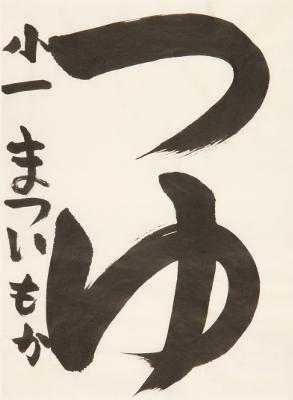 つゆ
小一 まついもか